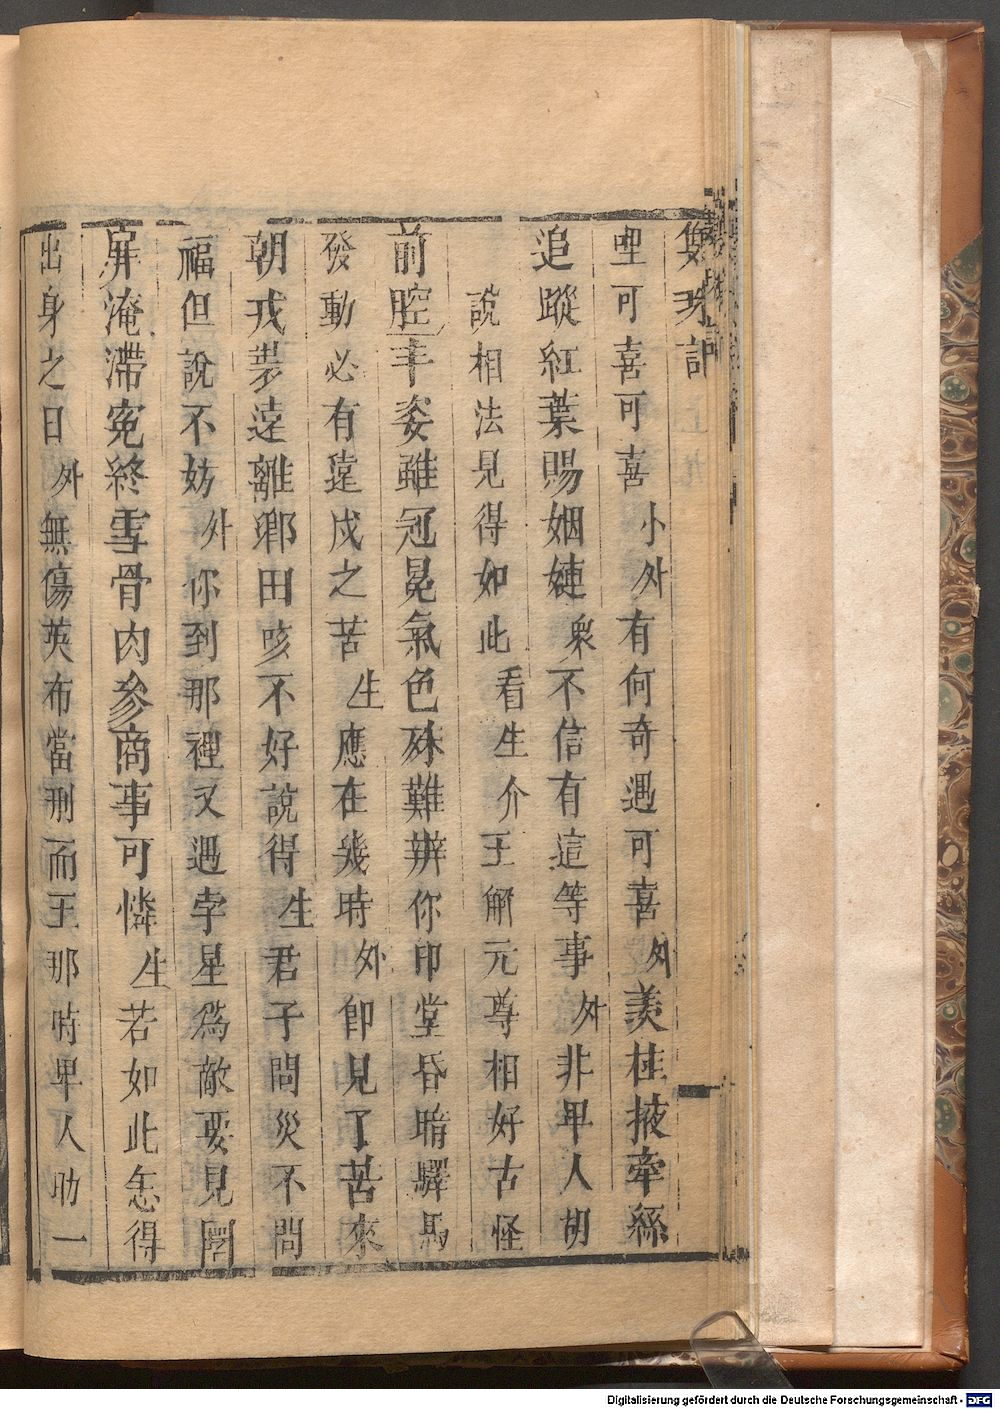 雙珠記
哩可喜可喜小外有何奇遇可喜外美桂掖牽絲
追蹤紅葉賜姻㜕衆不信有這等事外非甲人胡
說相法見得如此看生介王解元尊相好古怪
前腔丰姿雖冠冕氣色殊難辨你印堂昏暗驛馬
發動必有遠戍之苦生應在幾時外即見了苦來
朝戎裝遠離鄉田咳不好說得生君子問災不問
福但說不妨外你到那裡又遇孛星爲敵要見囹
屏淹滯寃終雪骨肉參商事可憐生若如此怎得
出身之日外無傷英布當刑而王那時卑人助一
Digitalisierung gefördert durch die Deutsche Forschungsgemeinschaft - DFG